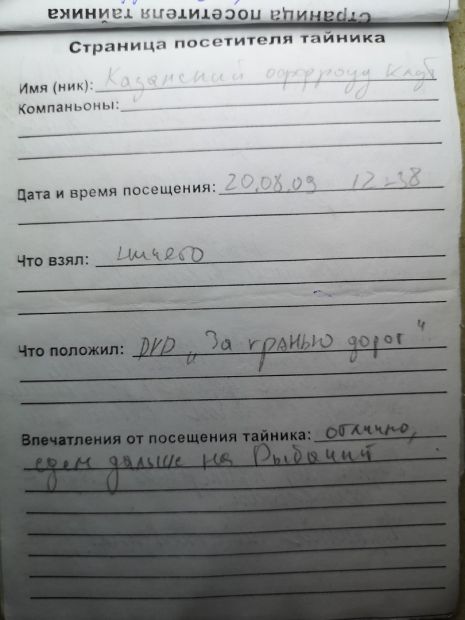 Страница посетителя тайника
Страница посетителя тайника
Имя (ник): Казанский оффроуд клуб
Компаньоны:
Дата и время посещения: 20.08.09 12-38
Что взял: ничего
Что положил: DVD „За гранью дорог"
Впечатления от посещения тайника: отлично,
едем дальше на Рыбачий